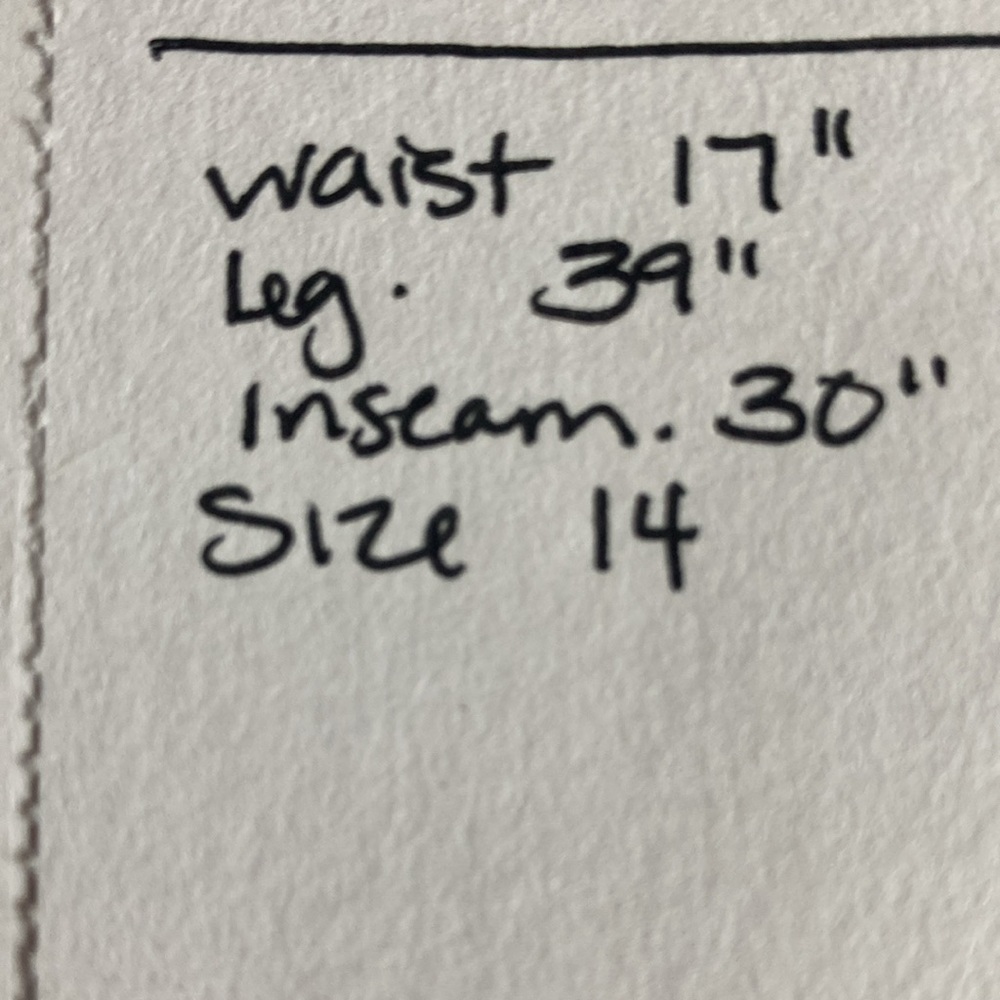 waist 17"
Leg. 39"
Inseam. 30"
Size 14